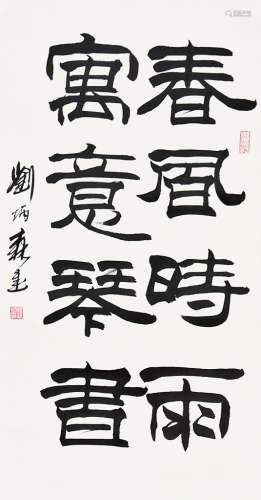 春風時雨
寓意琴書
劉炳森書